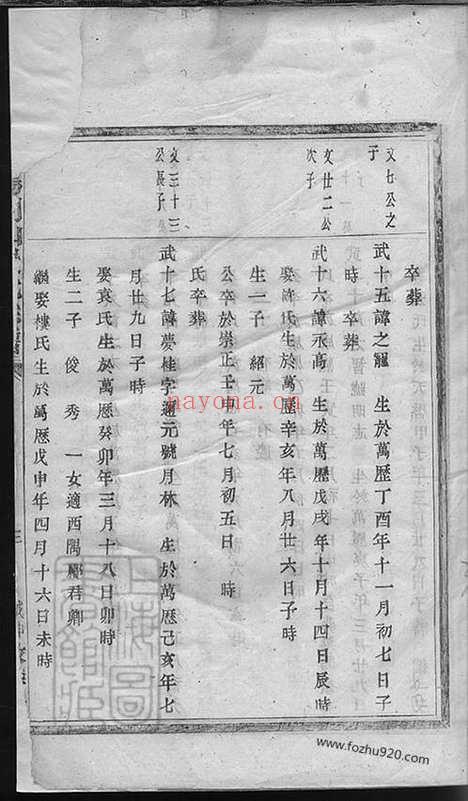 卒葬
文七公之子
武十五諱之寵 生於萬歷丁酉年十一月初七日子
時 卒葬
文廿二公次子
武十六諱永高 生於萬歷戊戌年十月十四日辰時
娶許氏生於萬歷辛亥年八月廿六日子時
生一子 紹元
公卒於崇正壬申年七月初五日 時
氏卒葬
文三十三公長子
武十七諱夢桂字通元號月林 生於萬歷己亥年七
月廿九日子時
娶袁氏生於萬歷癸卯年三月十八日卯時
生二子 俊 秀 一女適西隅酈君卿
繼娶樓氏生於萬歷戊申年四月十六日未時
nayona.cn
www.fozhu920.com